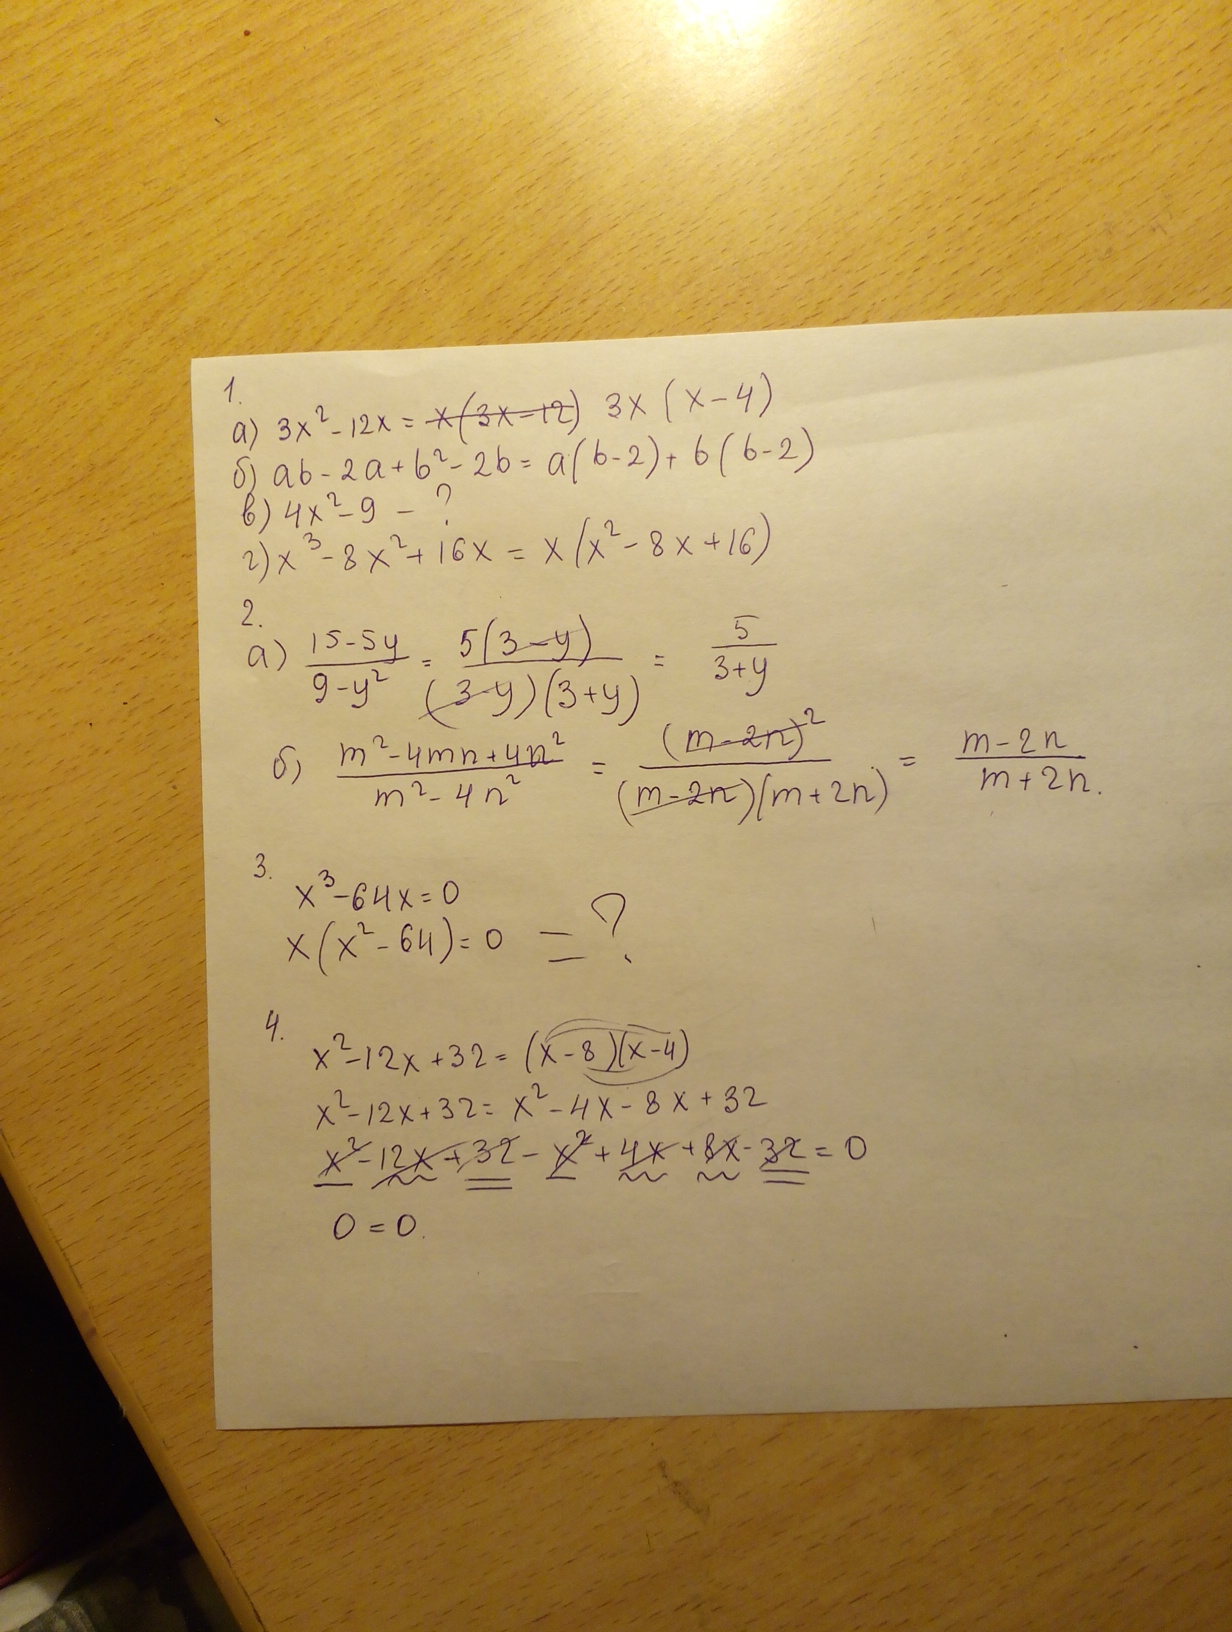 1.
а) 3x² - 12x = ~~x(3x-12)~~ 3x(x-4)
б) ab - 2a + b² - 2b = a(b-2) + b(b-2)
в) 4x² - 9 - ?
г) x³ - 8x² + 16x = x(x² - 8x + 16)
2.
а) (15-5y)/(9-y²) = 5(3-y)/((3-y)(3+y)) = 5/(3+y)
б) (m²-4mn+4n²)/(m²-4n²) = (m-2n)²/((m-2n)(m+2n)) = (m-2n)/(m+2n).
3.
x³ - 64x = 0
x(x² - 64) = 0 = ?
4.
x² - 12x + 32 = (x-8)(x-4)
x² - 12x + 32 = x² - 4x - 8x + 32
x² - 12x + 32 - x² + 4x + 8x - 32 = 0
0 = 0.